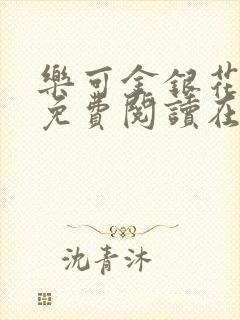 樂可金銀花
免費閱讀在
沈青沐